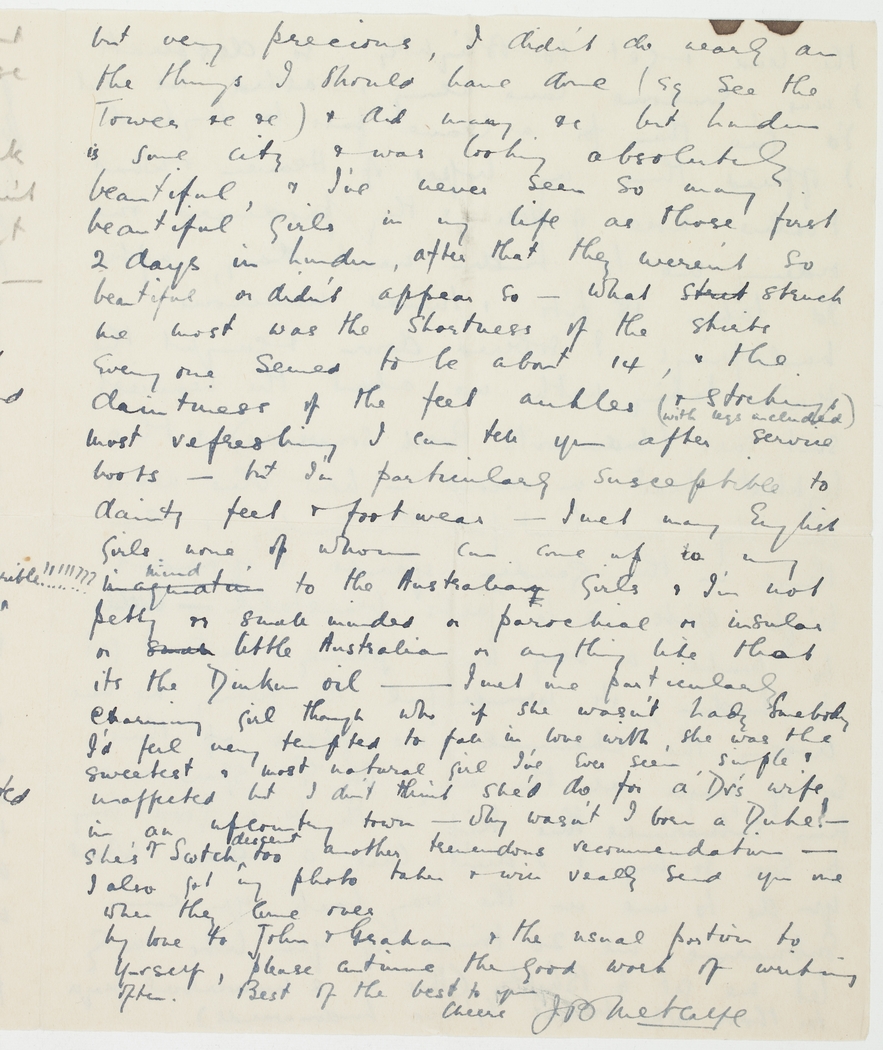 but very precious, I didn't do nearly all
the things I should have done (eg see the
Tower &c &c) & did many &c but London
is some city & was looking absolutely
beautiful, & I've never seen so many
beautiful girls in my life as those first
2 days in London, after that they weren't so
beautiful or didn't appear so — What strut struck
me most was the shortness of the skirts
Every one seemed to be about 14, & the
daintiness of the feet ankles (& stockings)
(with legs included)
most refreshing I can tell you after service
boots — but I'm particularly susceptible to
dainty feet & footwear — I met many English
girls none of whom can come up to my
mind
imagination to the Australian girls & I'm not
petty or small minded or parochial or insular
or small little Australian or anything like that
its the Dinkum oil — I met one particularly
charming girl though who if she wasn't Lady Somebody
I'd feel very tempted to fall in love with, she was the
sweetest & most natural girl I've ever seen, simple &
unaffected but I don't think she'd do for a Dr's wife
in an upcountry town — Why wasn't I born a Duke! —
She's of Scotch descent too another tremendous recommendation —
I also got my photo taken & will really send you one
when they come over
My love to John & Graham & the usual portion to
yourself, please continue the good work of writing
often. Best of the best to you
Cheero JBMetcalfe